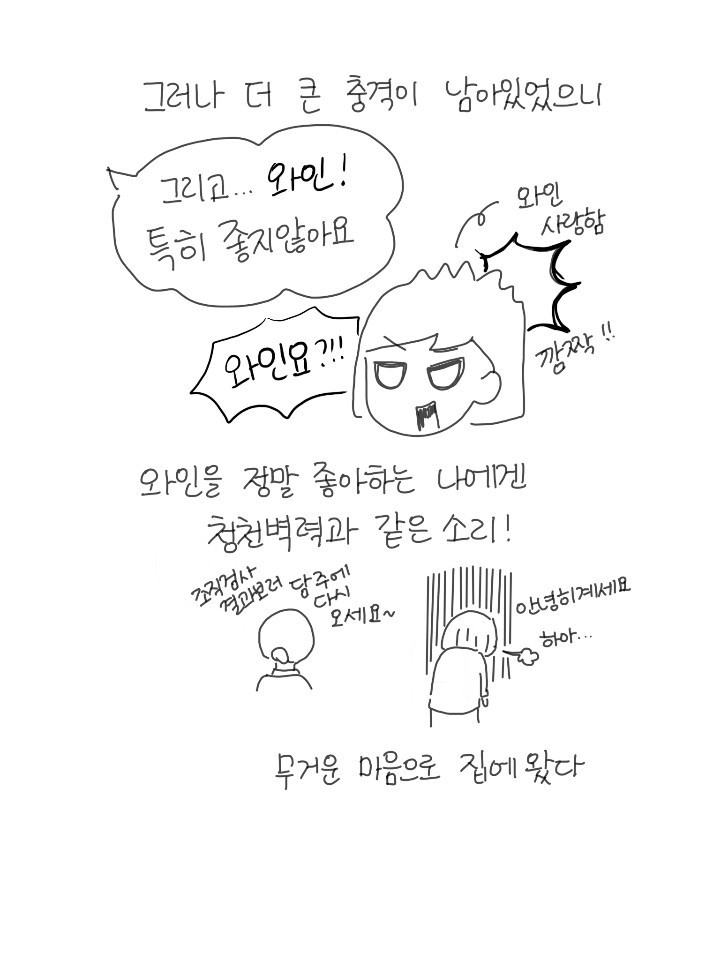 그러나 더 큰 충격이 남아있었으니
그리고... 와인!
특히 좋지않아요
와인
사랑함
깜짝!!
와인요?!!
와인을 정말 좋아하는 나에겐
청천벽력과 같은 소리!
조직검사
결과보러 담주에
다시
오세요~
안녕히계세요
하아...
무거운 마음으로 집에 왔다